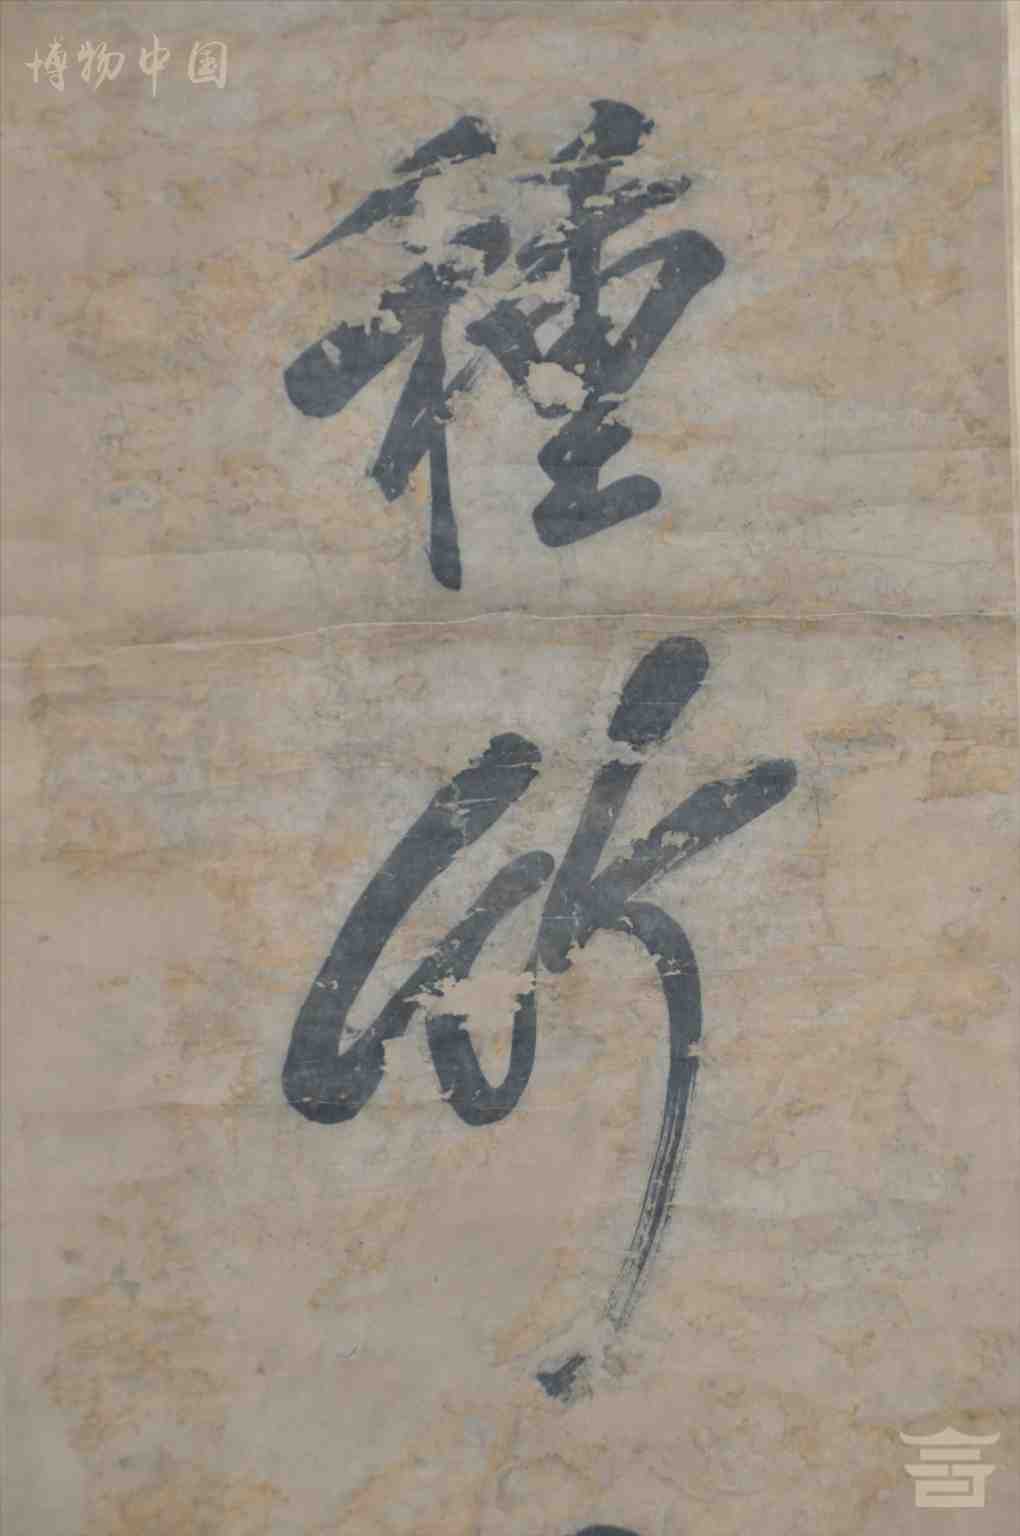 博物中国
種
竹